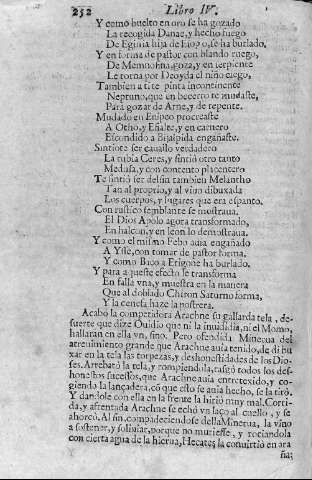 252 Libro IV.
Y como buelto en oro se ha gozado
La recogida Danae, y hecho fuego
De Eginia hija de Esopo, se ha burlado.
Y en forma de pastor con blando ruego,
De Memnosina, goza, y en serpiente
Le torna por Deoyda el niño ciego,
Tambien a ti te pinta incontinente
Neptuno, que en becerro te mudaste,
Para gozar de Arne, y de repente.
Mudado en Enipeo procreaste
A Otho, y Efialte, y en carnero
Escondido a Bisalpida engañaste.
Sintiote ser cauallo verdadero
La rubia Ceres, y sintió otro tanto
Medusa, y con contento placentero
Te sintió ser delfin tambien Melantho
Tan al proprio, y al viuo dibuxada
Los cuerpos, y lugares que era espanto.
Con rustico semblante se mostraua
El Dios Apolo agora transformado,
En halcon, y en leon lo demostraua.
Y como el mismo Febo auia engañado
A Ysse, con tomar de pastor forma.
Y como Baco a Erigone ha burlado.
Y para aqueste efecto se transforma
En falsa vua, y muestra en la manera
Que al doblado Chiron Saturno forma,
Y la cenefa haze la postrera.
Acabò la competidora Arachne su gallarda tela, de
suerte que dize Ouidio que ni la inuidia, ni el Momo,
hallaran en ella vn, sino. Pero ofendida Minerua del
atreuimiento grande que Arachne auia tenido, de dibu
xar en la tela las torpezas, y deshonestidades de los Dio
ses. Arrebatò la tela, y rompiendola, rasgò todos los des
honestos sucessos, que Arachne auia entretexido, y co
giendo la lançadera, cõ que esto se auia hecho, se la tirò
Y dandole con ella en la frente la hirio muy mal. Corri-
da, y afrentada Arachne se echó vn laço al cuello, y se
ahorcò. Al fin compadeciendose della Minerua, la vino
a sostener, y soliuiar, porque no muriesse, y rociandola
con cierta agua de la hierua, Hecates la conuirtio en ara
ña;